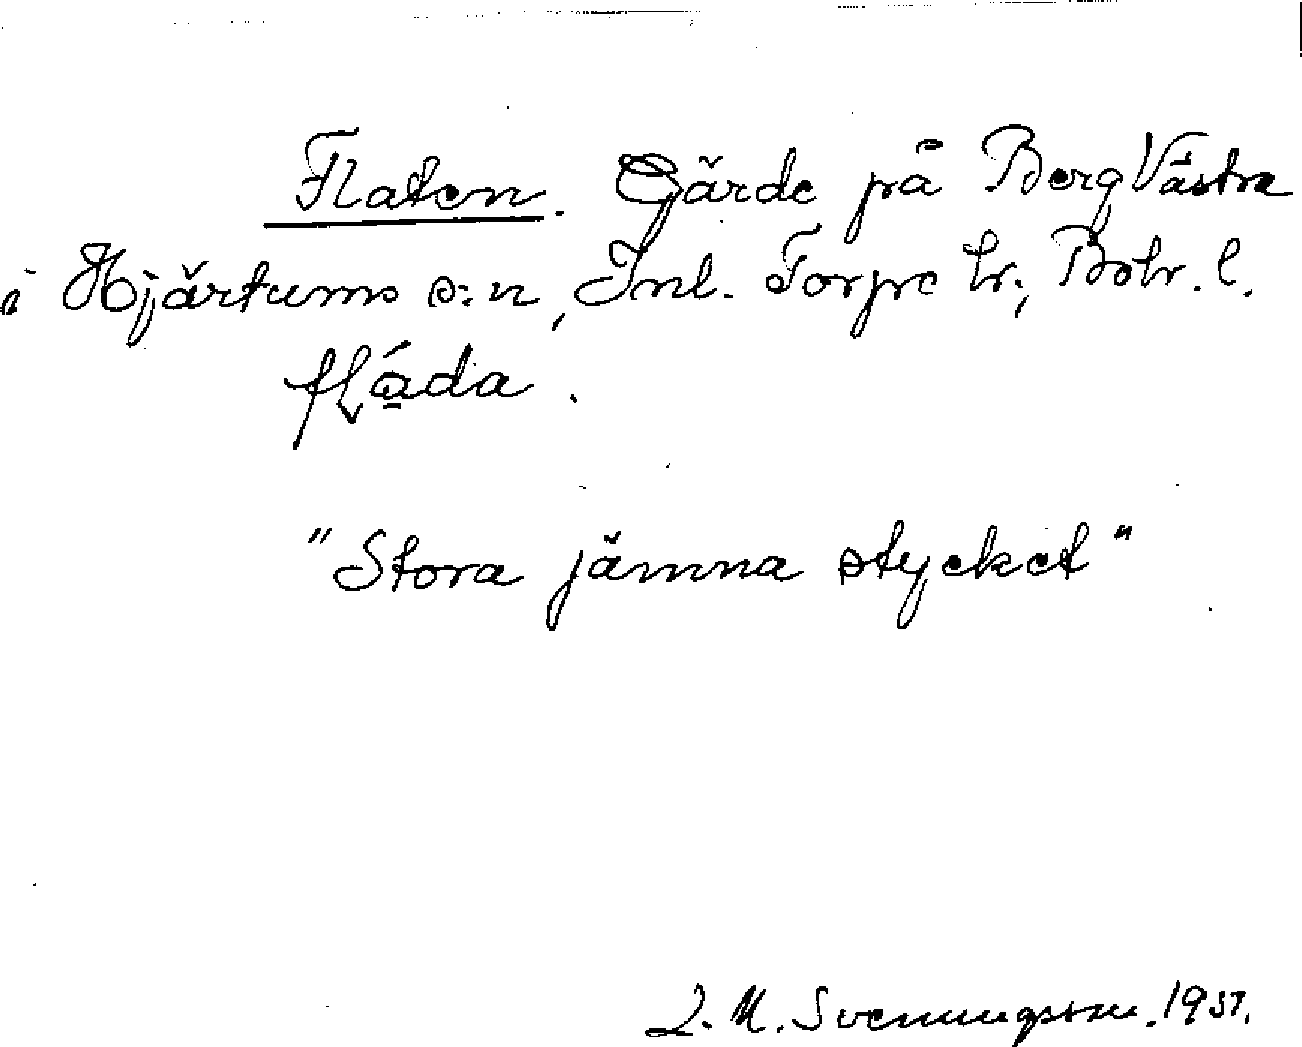 Flaten. Gärde på Berg Västra
i Hjärtums s:n, Inl. Torpe hr., Bohr. l.
flá̱da.
"Stora jämna stycket"
J. M. Svenningsson. 1937.